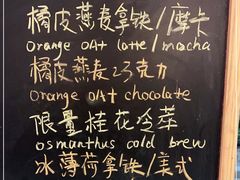 橘皮燕麦拿铁/摩卡
Orange OAt latte/mocha
橘皮燕麦巧克力
Orange OAt chocolate
限量桂花冷萃
osmanthus cold brew
冰薄荷拿铁/美式